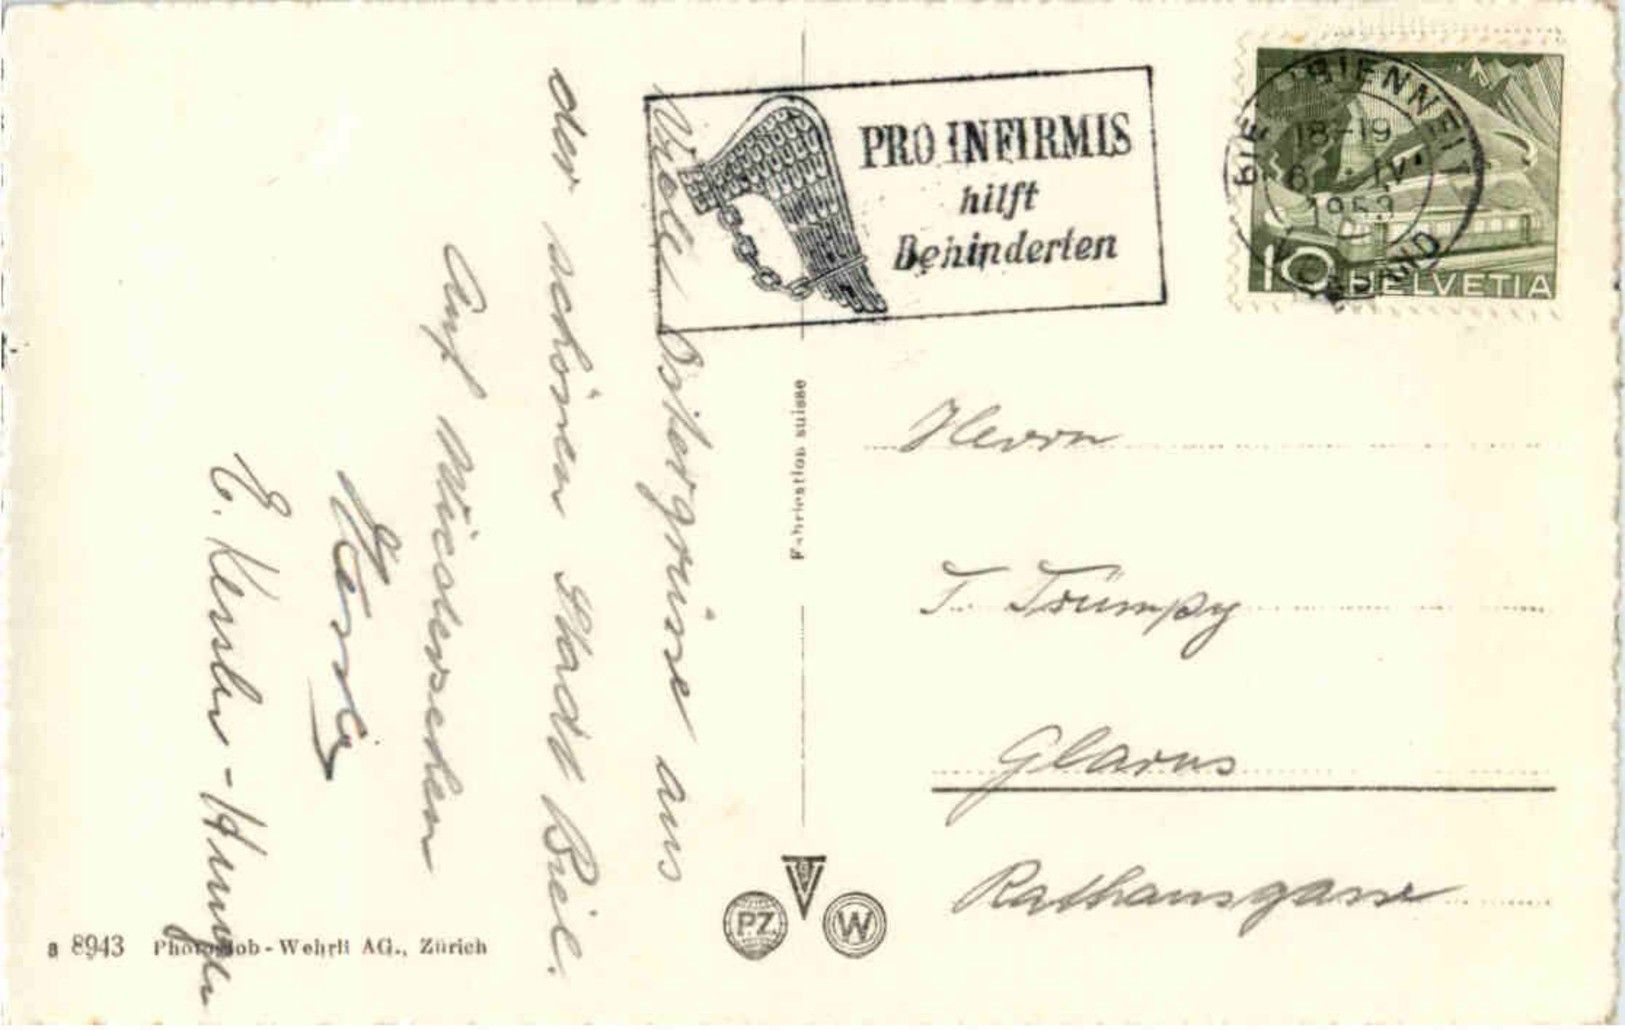 Viele Ostergrüsse aus
der schönen Stadt Biel.
Auf Wiedersehen
E. Kessler-
PRO INFIRMIS
hilft
Behinderten
BIENNE 1
18-19
IV
HELVETIA
10
Fabrication suisse
Herrn
T. Trümpy
Glarus
Rathausgasse
PZ
W
8943 Photoglob-Wehrli AG., Zürich